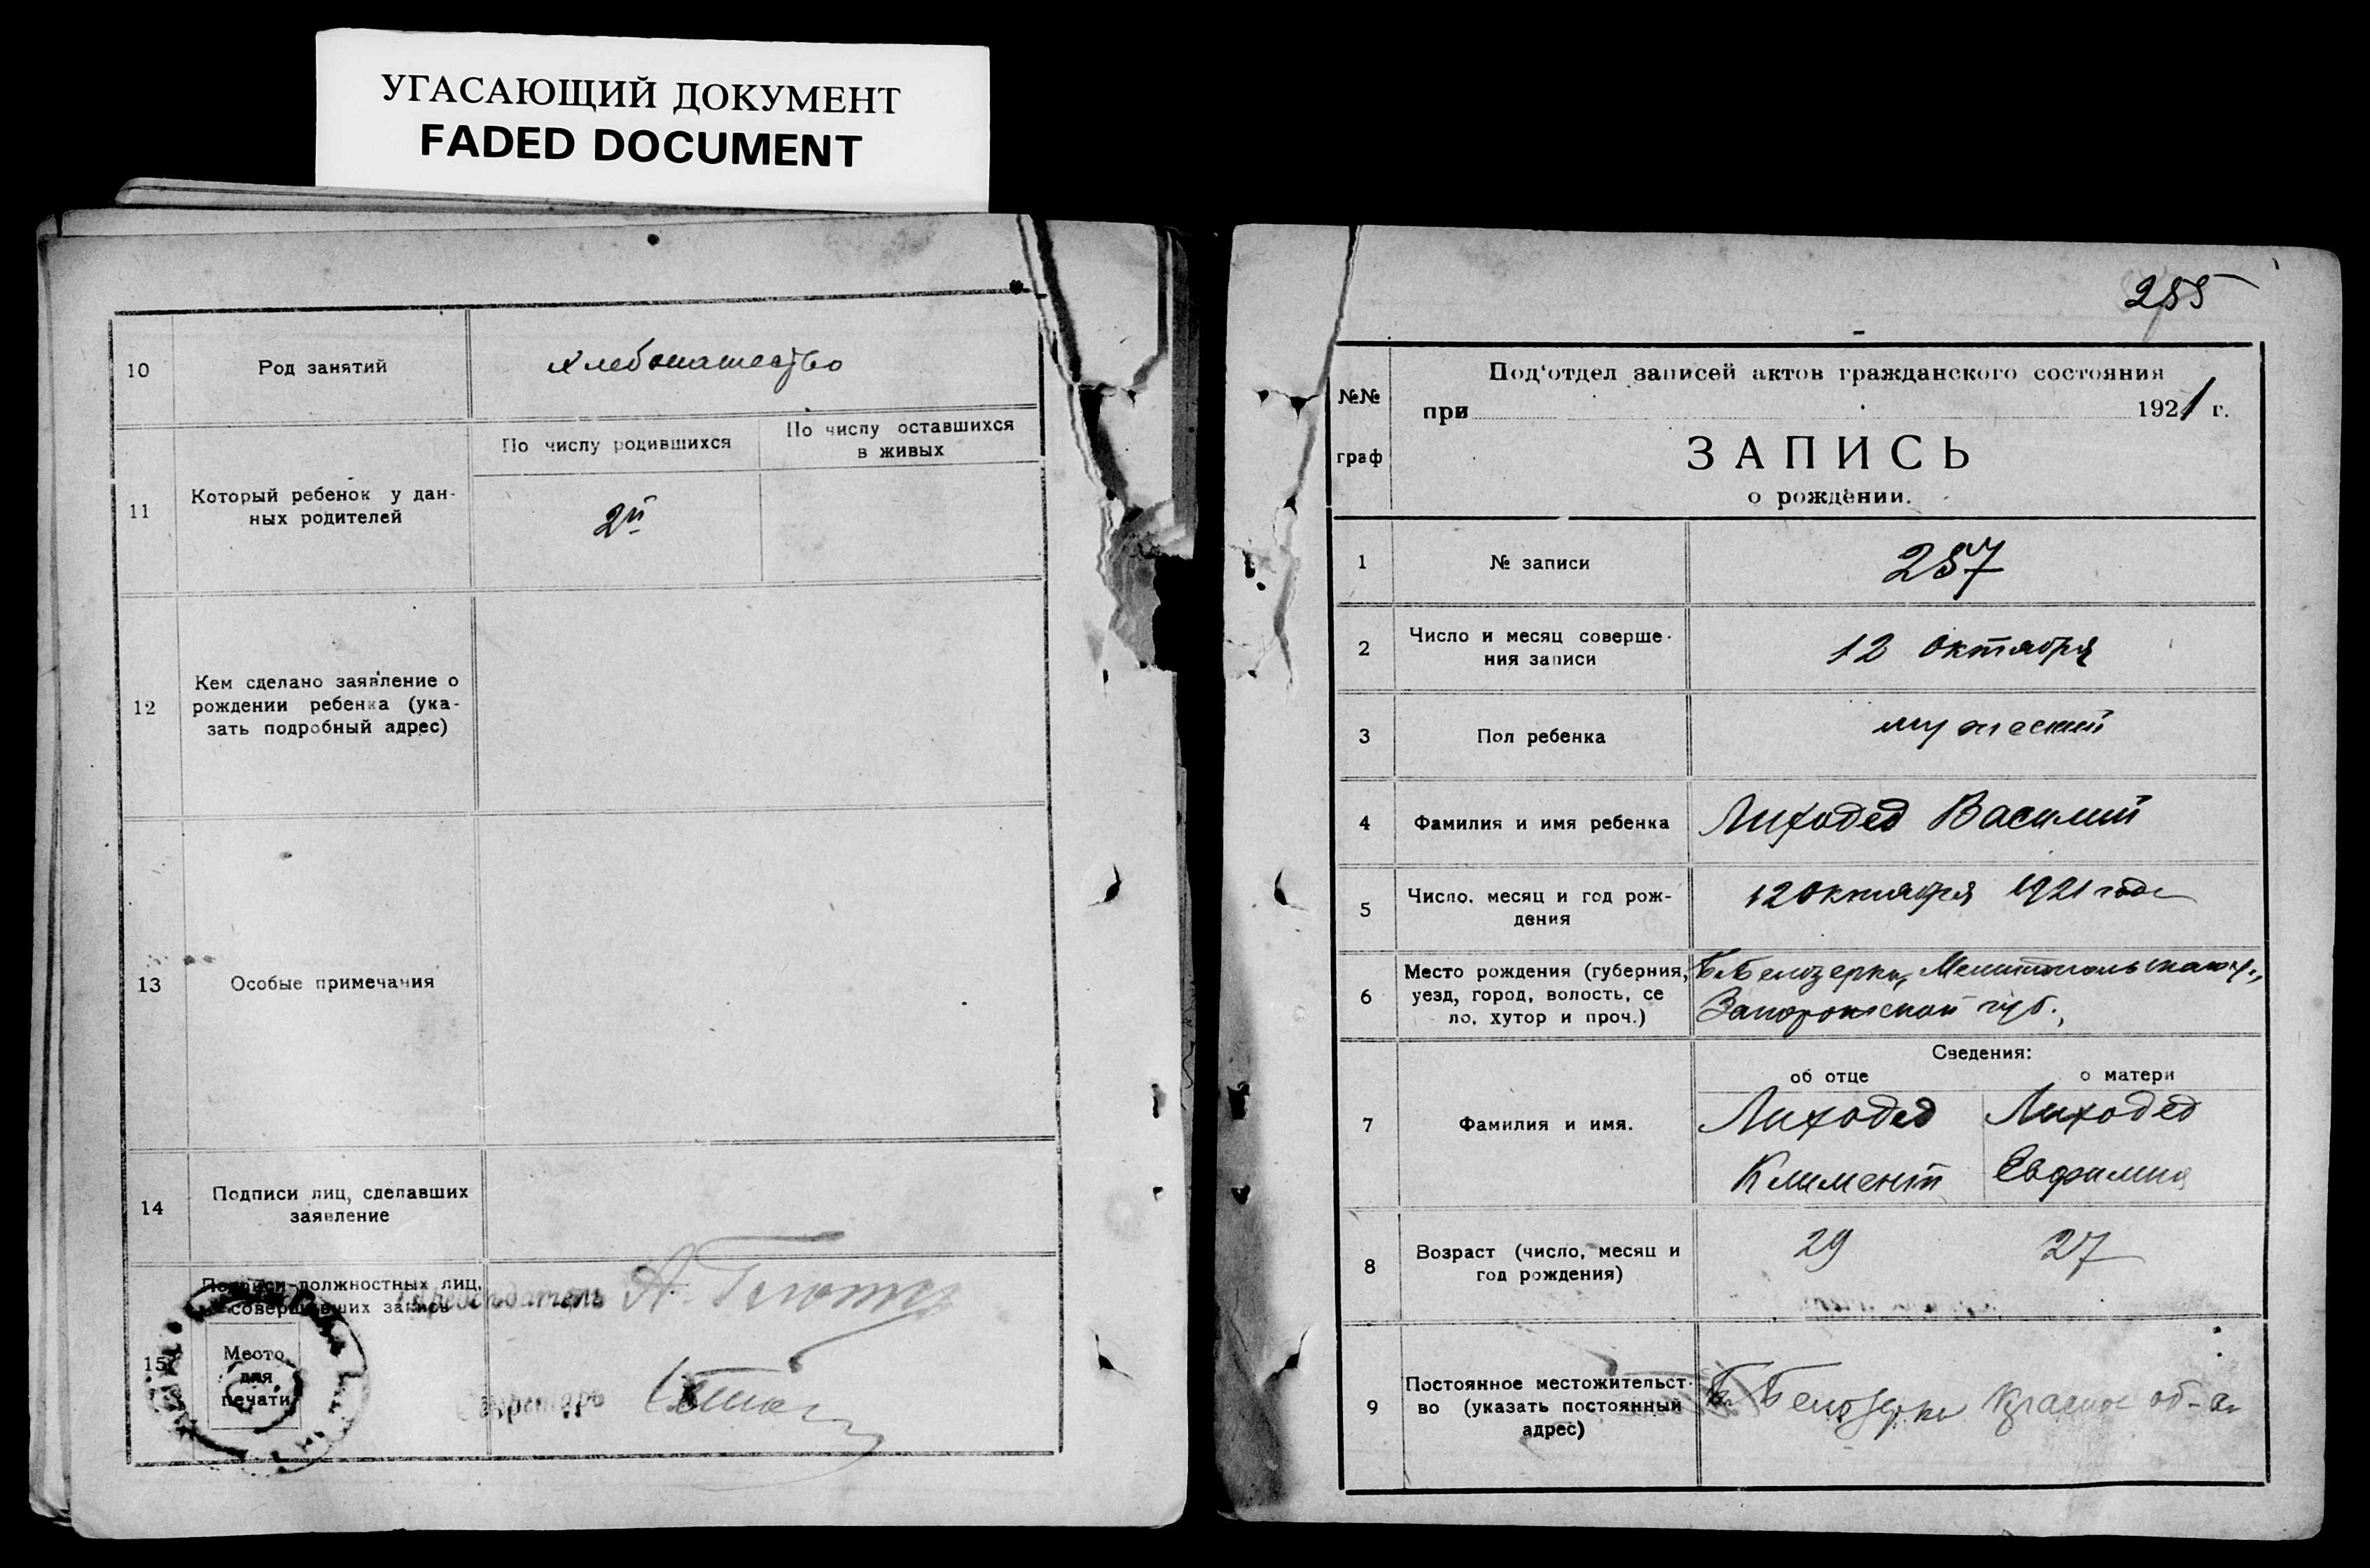 УГАСАЮЩИЙ ДОКУМЕНТ
FADED DOCUMENT
10 Род занятий хлебопашество
11 Который ребенок у дан-
ных родителей
По числу родившихся
По числу оставшихся
в живых
2й
12 Кем сделано заявление о
рождении ребенка (ука-
зать подробный адрес)
13 Особые примечания
14 Подписи лиц, сделавших
заявление
15 Подписи должностных лиц,
совершивших запись
Председатель
Место
для
печати
Секретарь
255
№№
граф
Под'отдел записей актов гражданского состояния
при 1921 г.
ЗАПИСЬ
о рождении.
1 № записи 257
2 Число и месяц соверше-
ния записи
12 октября
3 Пол ребенка мужеский
4 Фамилия и имя ребенка Лиходед Василий
5 Число, месяц и год рож-
дения
12 октября 1921 года
6 Место рождения (губерния,
уезд, город, волость, се
ло, хутор и проч.)
Б. Белозерка, Мелитопольского у.,
Запорожской губ.,
Сведения:
об отце о матери
7 Фамилия и имя.
Лиходед Лиходед
Климент Евфимия
8 Возраст (число, месяц и
год рождения)
29 27
9 Постоянное местожительст-
во (указать постоянный
адрес)
Б. Белозерка